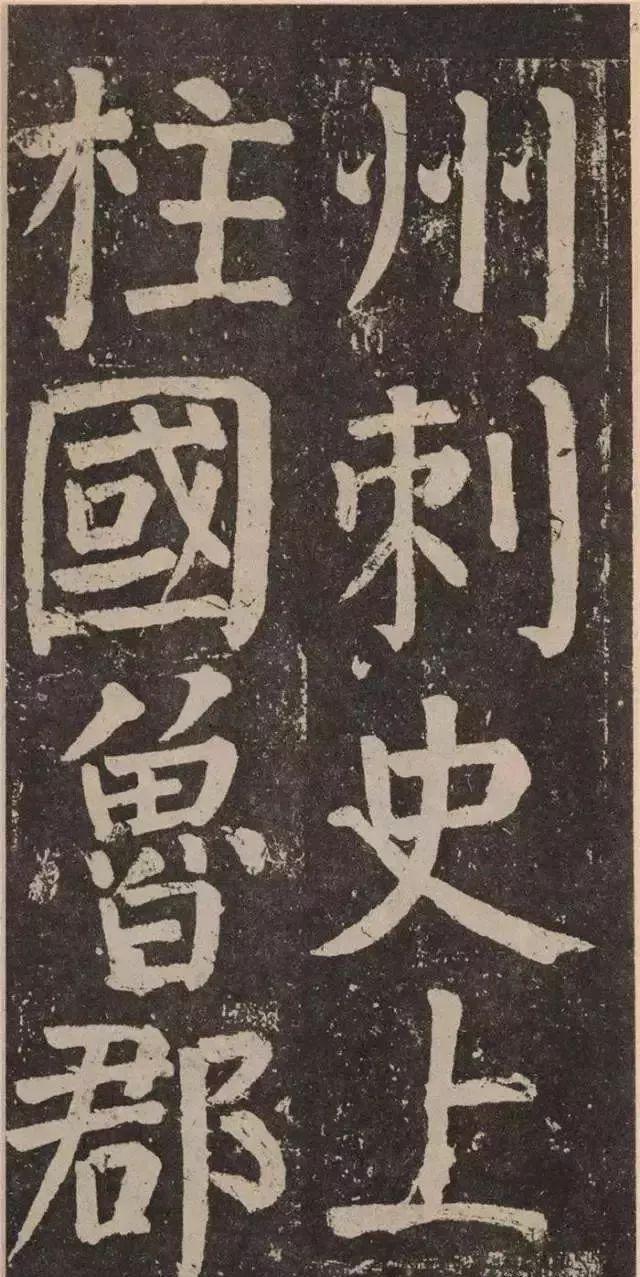 州刺史上
柱國魯郡